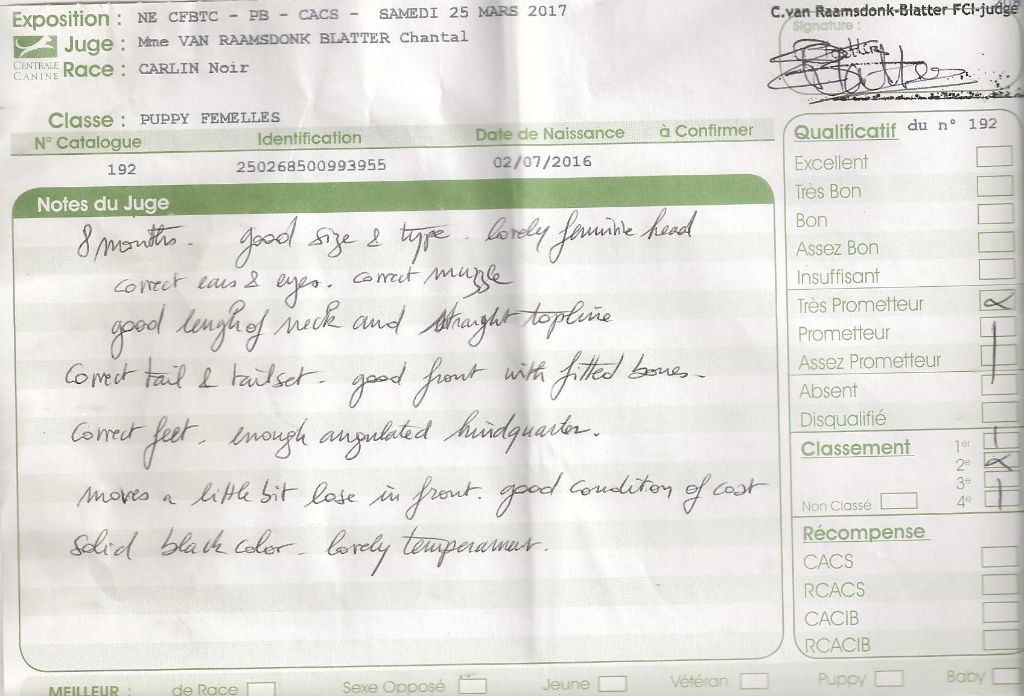 Exposition : NE CFBTC - PB - CACS - SAMEDI 25 MARS 2017
C.van Raamsdonk-Blatter FCI-judge
Signature :
CENTRALE CANINE
Juge : Mme VAN RAAMSDONK BLATTER Chantal
Race : CARLIN Noir
Classe : PUPPY FEMELLES
N° Catalogue Identification Date de Naissance à Confirmer
192 250268500993955 02/07/2016
Notes du Juge
8 months. good size & type. lovely feminine head
correct ears & eyes. correct muzzle
good lengh of neck and straight topline
Correct tail & tailset. good front with fitted bones.
Correct feet. enough angulated hindquarter.
moves a little bit lose in front. good condition of coat
solid black color. lovely temperament.
Qualificatif du n° 192
Excellent
Très Bon
Bon
Assez Bon
Insuffisant
Très Prometteur
Prometteur
Assez Prometteur
Absent
Disqualifié
Classement 1er
2e
3e
Non Classé 4e
Récompense
CACS
RCACS
CACIB
RCACIB
MEILLEUR : de Race Sexe Opposé Jeune Vétéran Puppy Baby